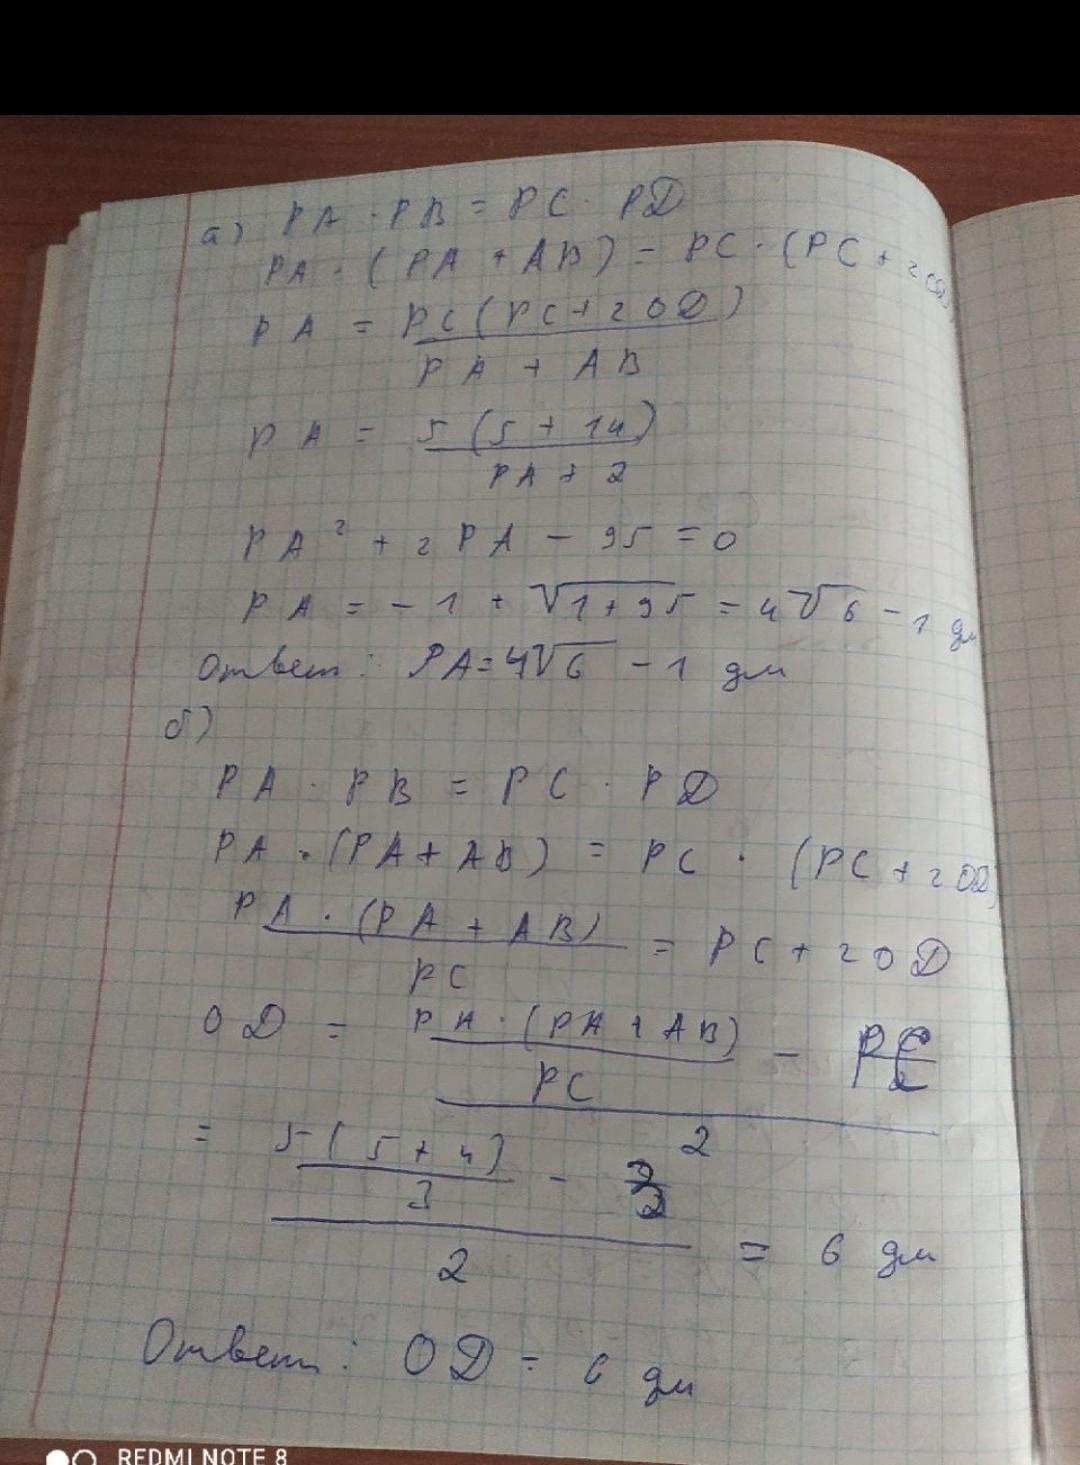 а) PA · PB = PC · PD
PA · (PA + AB) = PC · (PC + 2OD)
PA = PC(PC + 2OD) / PA + AB
PA = 5(5 + 14) / PA + 2
PA² + 2PA - 95 = 0
PA = -1 + √1+95 = 4√6 - 1 дм
Ответ: PA = 4√6 - 1 дм
б)
PA · PB = PC · PD
PA · (PA + AB) = PC · (PC + 2OD)
PA · (PA + AB) / PC = PC + 2OD
OD = PA · (PA + AB) / PC - PC / 2
= 5(5 + 4) / 3 - 3 / 2 = 6 дм
Ответ: OD = 6 дм
REDMI NOTE 8